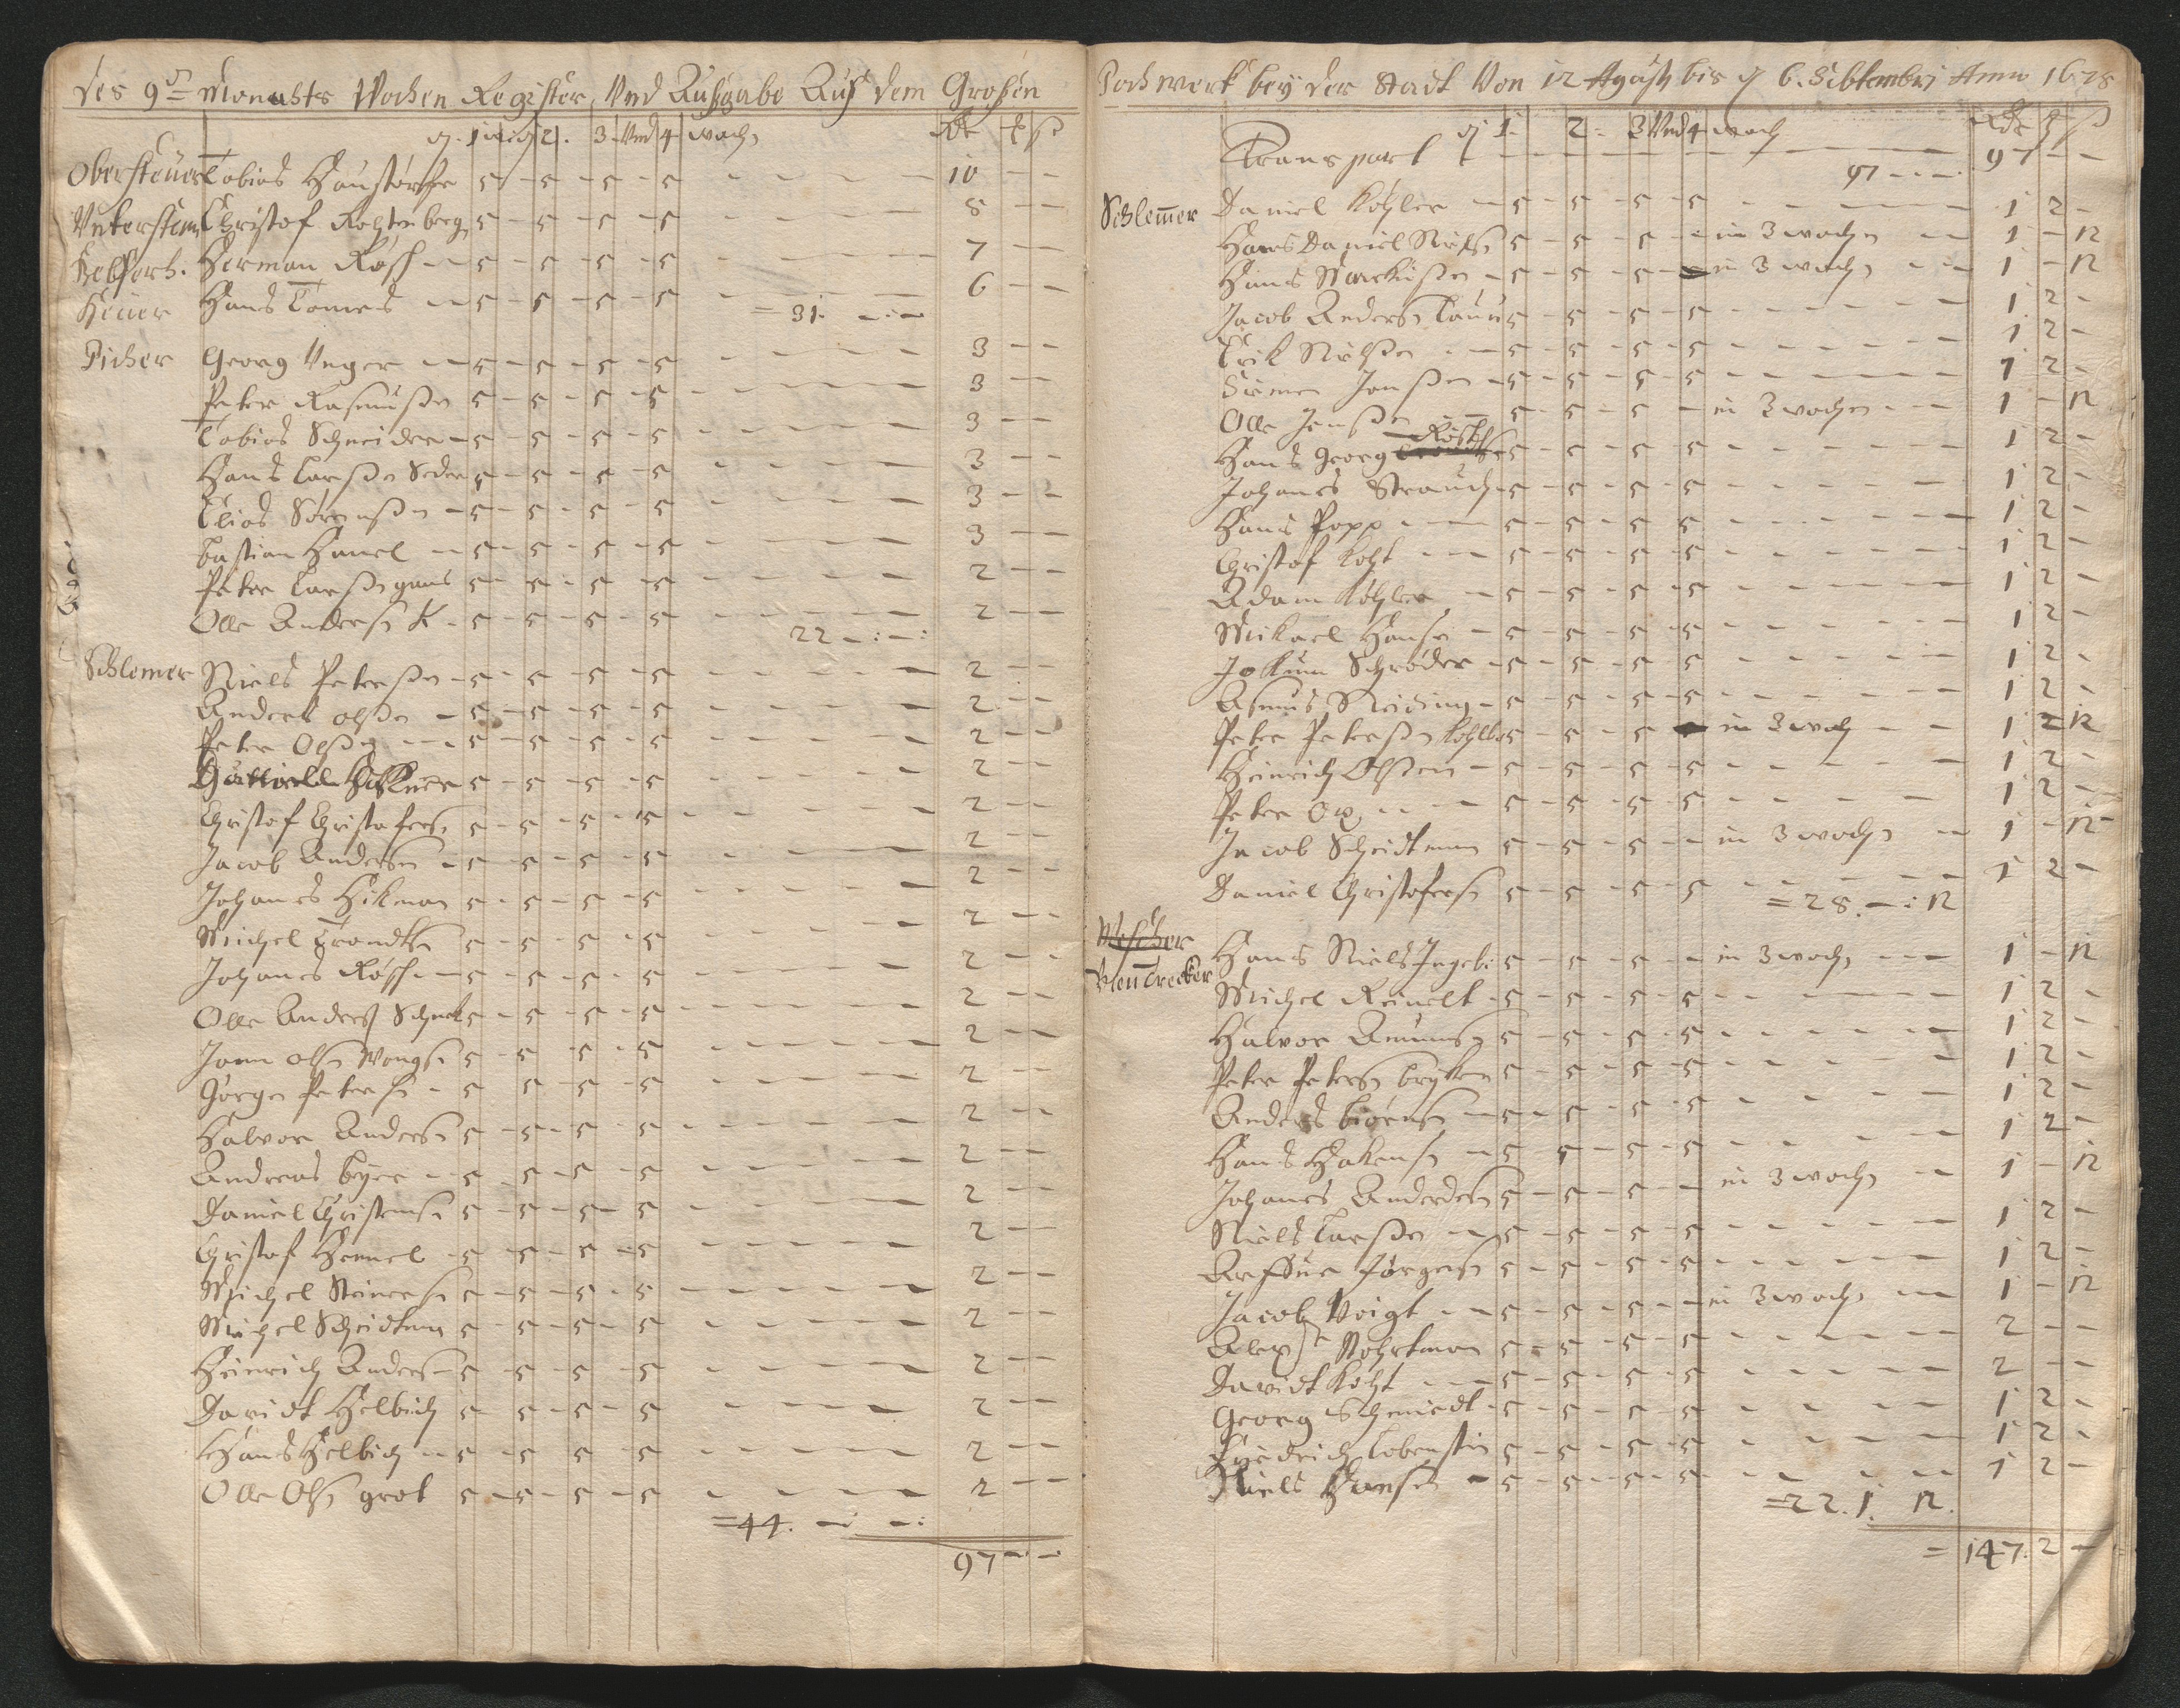 Des 9t Monahts Wochen Register, Vnd Außgabe Auß dem Großen
1 2. 3. Vnd 4 wochn
Obersteuer Tobias Haustörfer 5 – 5 – 5 – 5 – – – – – 10 – –
Vntersteur Christof Rechtenberg 5 – 5 – 5 – 5 – – – – 8 – –
Herman Rösch – 5 – 5 – 5 – 5 – – – – 7 – –
Heuer Hans Tomes – 5 – 5 – 5 – 5 – – – – 6 – –
= 31. – : –
Picher Georg Unger – 5 – 5 – 5 – 5 – – – – 3 – –
Peter Rasmußen 5 – 5 – 5 – 5 – – – – 3 – –
Tobias Schneider – 5 – 5 – 5 – 5 – – – – 3 – –
Hans Larßen 5 – 5 – 5 – 5 – – – – 3 – –
Elias Sörenßen – 5 – 5 – 5 – 5 – – – – 3 – –
Bastian Hanel – 5 – 5 – 5 – 5 – – – – 3 – –
Peter Larßen 5 – 5 – 5 – 5 – – – – 2 – –
Olle Andersn K – 5 – 5 – 5 – 5 – – – – 2 – –
22 – : – :
Schlemer Niels Peterßen – 5 – 5 – 5 – 5 – – – – 2 – –
Anders Olßen – 5 – 5 – 5 – 5 – – – – 2 – –
Peter Olßen – 5 – 5 – 5 – 5 – – – – 2 – –
5 – 5 – 5 – 5 – – – – 2 – –
Christof Christofersn 5 – 5 – 5 – 5 – – – – 2 – –
Jacob Andersen – 5 – 5 – 5 – 5 – – – – 2 – –
Johanes Hikman 5 – 5 – 5 – 5 – – – – 2 – –
Michel Trondtsn 5 – 5 – 5 – 5 – – – – 2 – –
Johanes Rösch – 5 – 5 – 5 – 5 – – – – 2 – –
Olle Andersn 5 – 5 – 5 – 5 – – – – 2 – –
Joen Olsn 5 – 5 – 5 – 5 – – – – 2 – –
Jörgen Petersn – 5 – 5 – 5 – 5 – – – – 2 – –
Halvor Andersn 5 – 5 – 5 – 5 – – – – 2 – –
Andreas Beyer – 5 – 5 – 5 – 5 – – – – 2 – –
Daniel Christensn 5 – 5 – 5 – 5 – – – – 2 – –
Christof Hemel – 5 – 5 – 5 – 5 – – – – 2 – –
Michel Steinersn 5 – 5 – 5 – 5 – – – – 2 – –
Michel Scheidtman 5 – 5 – 5 – 5 – – – – 2 – –
Heinrich Andersn – 5 – 5 – 5 – 5 – – – – 2 – –
Davidt Helbich 5 – 5 – 5 – 5 – – – – 2 – –
Hans Helbich – 5 – 5 – 5 – 5 – – – – 2 – –
Olle Olsn grot 5 – 5 – 5 – 5 – – – – 2 – –
= 44. – : – :
97 – –
Pochwerk bey der Stadt Von 12 Agusti bis 6. Sebtembrj Anno 1678
1. 2. 3 Vnd 4 woch
Transport – – – – – 97 – –
97 – –
Schlemer Daniel Köhler – 5 – 5 – 5 – 5 – – – – 1 2 –
Hans Daniel Nielsn 5 – 5 – 5 – in 3 wochn – – 1 – 12
Hans Markußen – 5 – 5 – 5 – in 3 wochn – – 1 – 12
Jacob Andersn 5 – 5 – 5 – 5 – – – – 1 2 –
Erik Nielßen – 5 – 5 – 5 – 5 – – – – 1 2 –
Simen Jonßen – 5 – 5 – 5 – 5 – – – – 1 2 –
Olle Jenßen 5 – 5 – 5 – in 3 wochn – – 1 – 12
Hans Georg Rösch 5 – 5 – 5 – 5 – – – – 1 2 –
Johanes Strauch – 5 – 5 – 5 – 5 – – – – 1 2 –
Hans Popp – 5 – 5 – 5 – 5 – – – – 1 2 –
Christof Koht – 5 – 5 – 5 – 5 – – – – 1 2 –
Adam Köhler – 5 – 5 – 5 – 5 – – – – 1 2 –
Mikael Hansn – 5 – 5 – 5 – 5 – – – – 1 2 –
Jokum Schröder – 5 – 5 – 5 – 5 – – – – 1 2 –
Asmus Neiding – 5 – 5 – 5 – 5 – – – – 1 2 –
Peter Petersn 5 – 5 – 5 – in 3 woch – – 1 – 12
Heinrich Olßen – 5 – 5 – 5 – 5 – – – – 1 2 –
Peter – 5 – 5 – 5 – 5 – – – – 1 2 –
Jacob Scheidtman 5 – 5 – 5 – in 3 wochn – 1 – 12
Daniel Christofersn 5 – 5 – 5 – 5 – – – – 1 2 –
= 28. – : 12
Hans Niels 5 – 5 – 5 – in 3 wochn – – 1 – 12
Michel Reinelt – 5 – 5 – 5 – 5 – – – – 1 2 –
Halvor Amunsn 5 – 5 – 5 – 5 – – – – 1 2 –
Peter Petersn 5 – 5 – 5 – 5 – – – – 1 2 –
Anders Biörnsn – 5 – 5 – 5 – 5 – – – – 1 2 –
Hans Hakensn – 5 5 – 5 – 5 – – – – 1 2 –
Johanes Andersen 5 – 5 – 5 – in 3 wochn – 1 – 12
Niels Larßen – 5 – 5 – 5 – 5 – – – – 1 2 –
Jörgensn 5 – 5 – 5 – 5 – – – – 1 2 –
Jacob Voigt – 5 – 5 – 5 – in 3 wochn – – 1 – 12
5 – 5 – 5 – 5 – – – – 2 – –
Davidt Koht – 5 – 5 – 5 – 5 – – – – 2 – –
Georg Schmiedt – 5 – 5 – 5 – 5 – – – – 1 2 –
Friedrich Lobenstein 5 – 5 – 5 – 5 – – – – 1 2 –
Niels Hansen – 5 – 5 – 5 – 5 – – – – 1 2 –
= 22. 1. 12.
= 147. 2 –